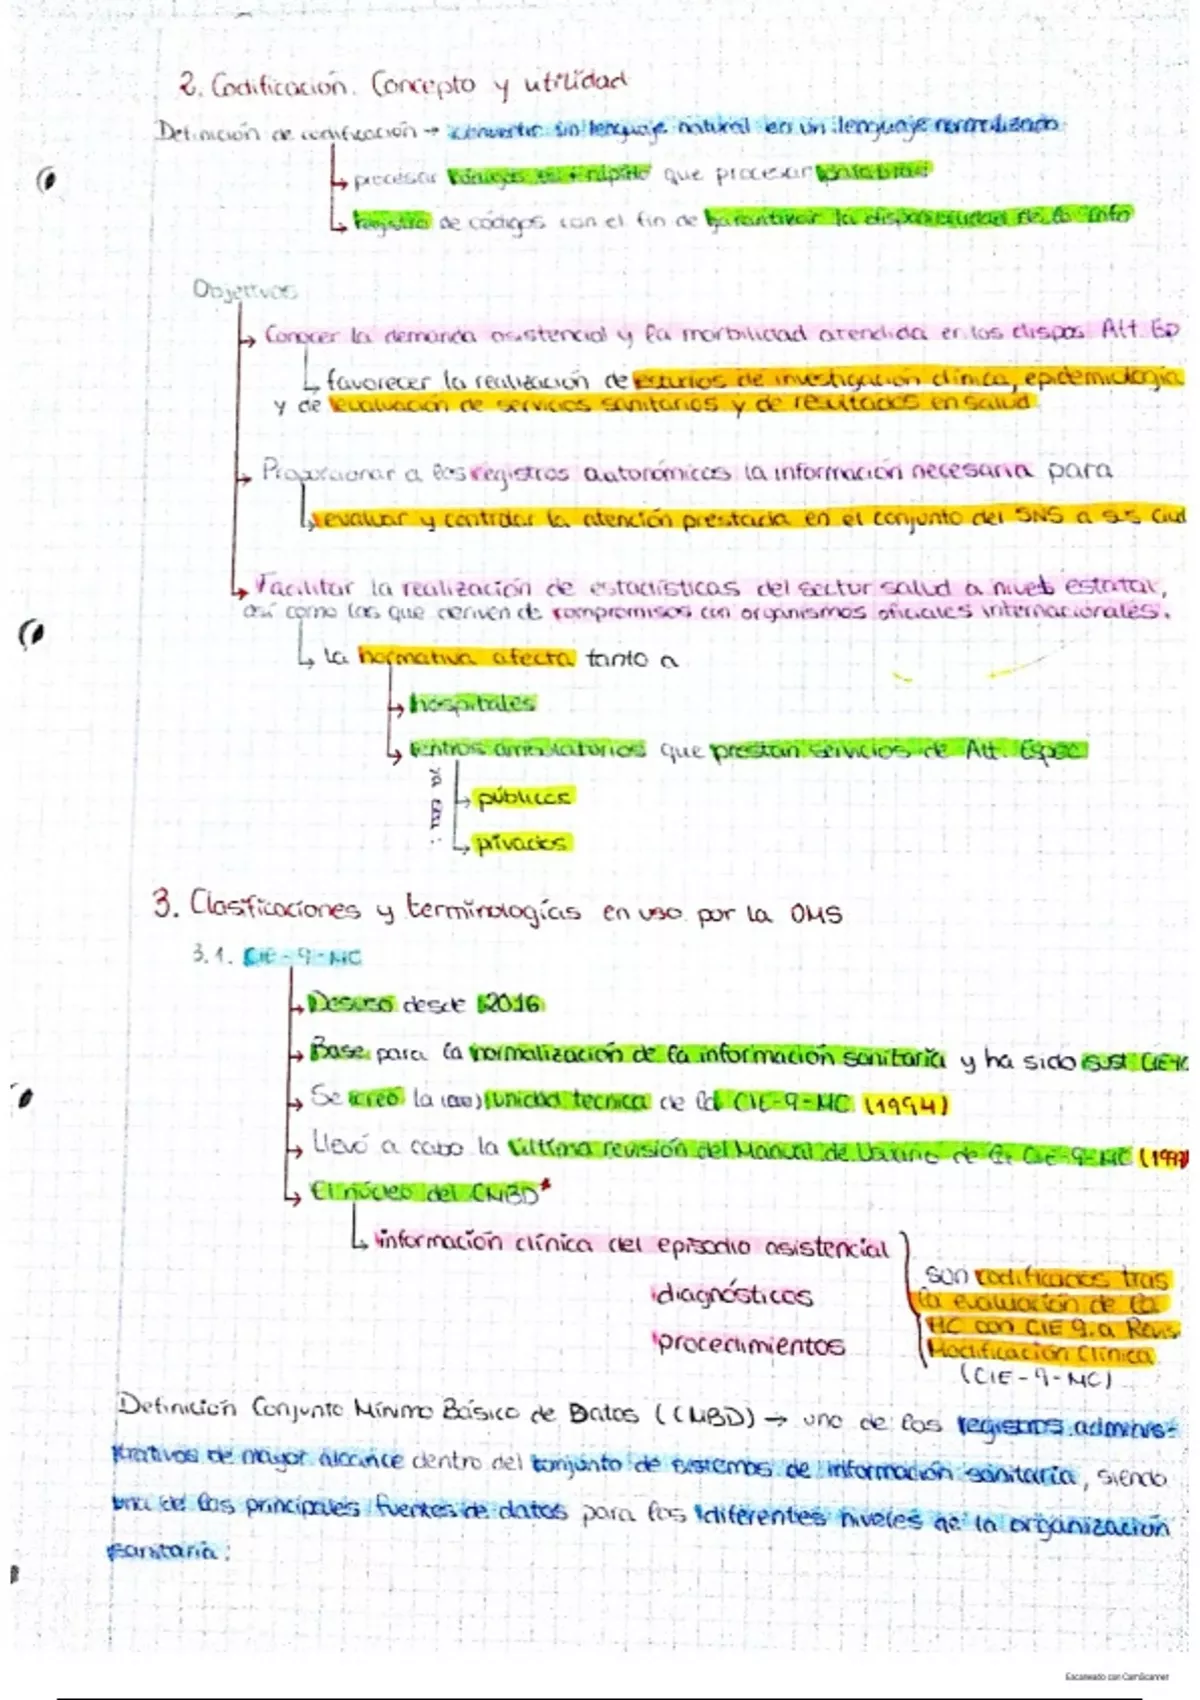 2. Codificación. Concepto y utilidad
Definición de codificación → convertir un lenguaje natural en un lenguaje normalizado
procesar códigos es + rápido que procesar palabras
registro de códigos con el fin de garantizar la disponibilidad de la info
Objetivos
Conocer la demanda asistencial y la morbilidad atendida en los dispos. Att. Esp
favorecer la realización de estudios de investigación clínica, epidemiología
y de evaluación de servicios sanitarios y de resultados en salud.
Proporcionar a los registros autonómicos la información necesaria para
evaluar y controlar la atención prestada en el conjunto del SNS a sus Ciud
Facilitar la realización de estadísticas del sector salud a nivel estatal,
así como las que deriven de compromisos con organismos oficiales internacionales.
la normativa afecta tanto a
hospitales
centros ambulatorios que prestan servicios de Att. Espec
públicos
privados
3. Clasificaciones y terminologías en uso por la OMS
3.1. CIE-9-MC
Desuso desde 2016
Base para la normalización de la información sanitaria y ha sido sust. CIE-10
Se creó la unidad técnica de la CIE-9-MC (1994)
Llevó a cabo la última revisión del Manual de Usuario de la CIE-9-MC
El núcleo del CMBD*
información clínica del episodio asistencial
diagnósticos
procedimientos
son codificados tras
la evaluación de la
HC con CIE 9.a Revis
Modificación Clínica
(CIE-9-MC)
Definición Conjunto Mínimo Básico de Datos (CMBD) → uno de los registros adminis-
trativos de mayor alcance dentro del conjunto de sistemas de información sanitaria, siendo
una de las principales fuentes de datos para los diferentes niveles de la organización
sanitaria.
Escaneado con CamScanner